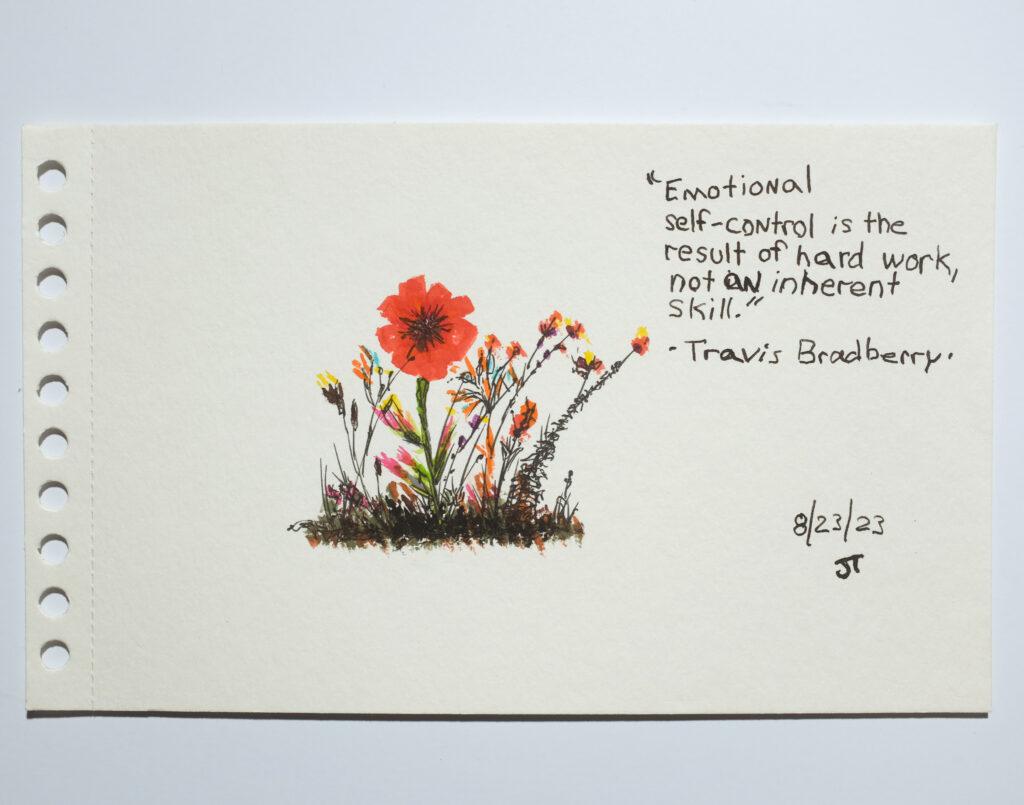 "Emotional
self-control is the
result of hard work,
not an inherent
skill."
- Travis Bradberry.
8/23/23
JT